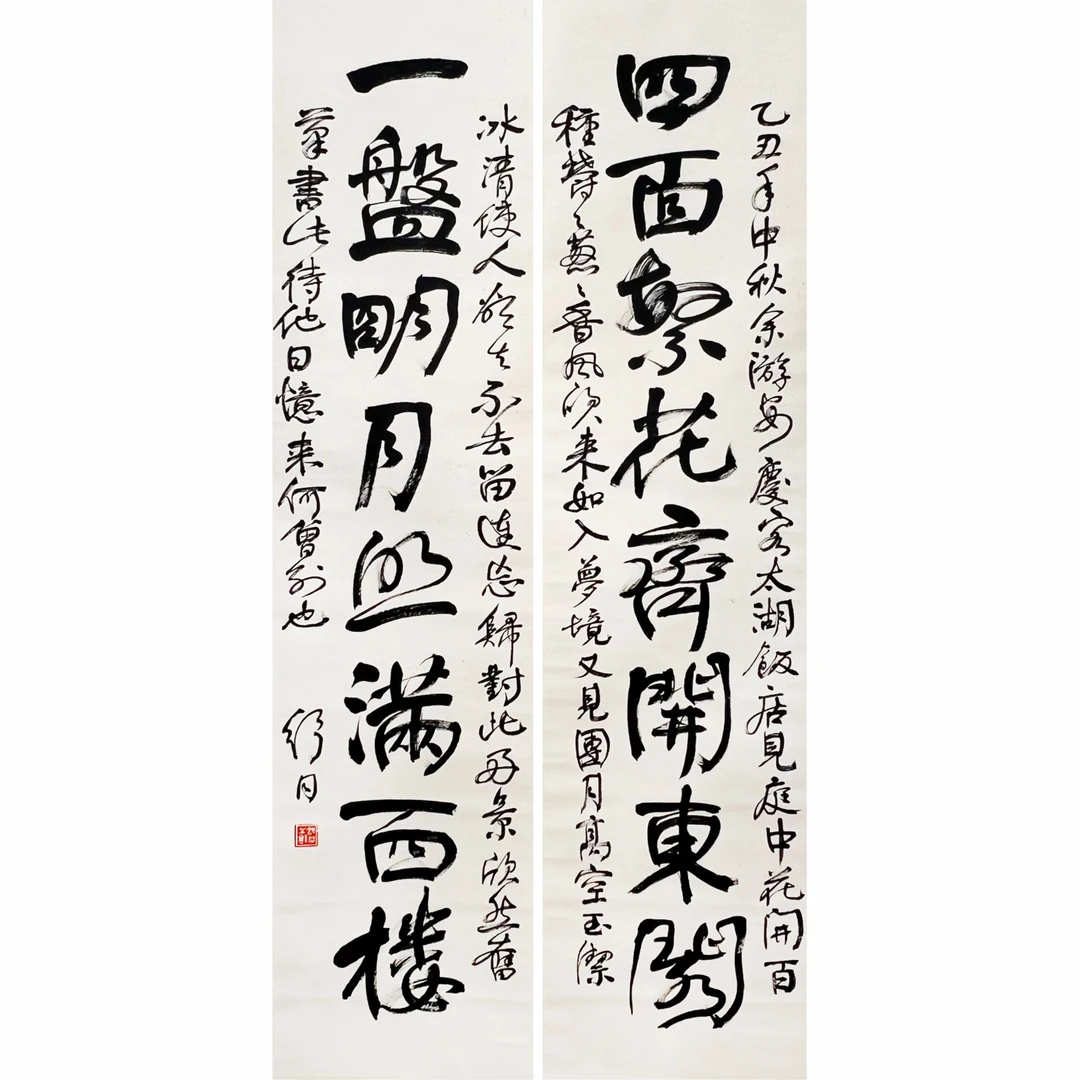 乙丑年中秋余游安慶客太湖飯店見庭中花開百
四面繁花齊開東閣
種鬱〻葱〻香風吹来如入夢境又見團月高空玉潔
冰清使人欲去不去留連忘歸對此好景欣然奮
一盤明月照滿西楼
筆書此待他日憶来何曾别也